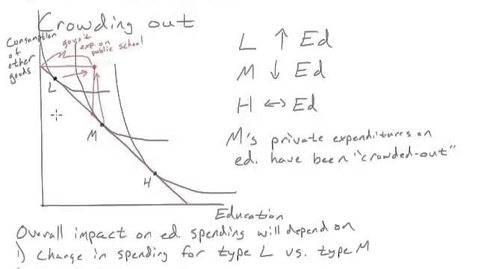 Crowding out
Consumption
of
other
goods
gov't
exp. on
public school
L
M
H
Education
L ↑ Ed
M ↓ Ed
H ↔ Ed
M's private expenditures on
ed. have been "crowded-out"
Overall impact on ed. spending will depend on
1) Change in spending for type L vs. type M